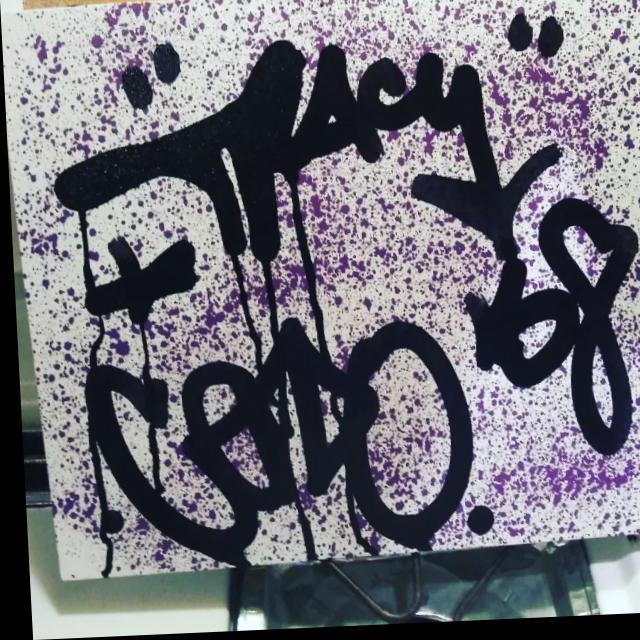 "TRACY 168"
+
CANO